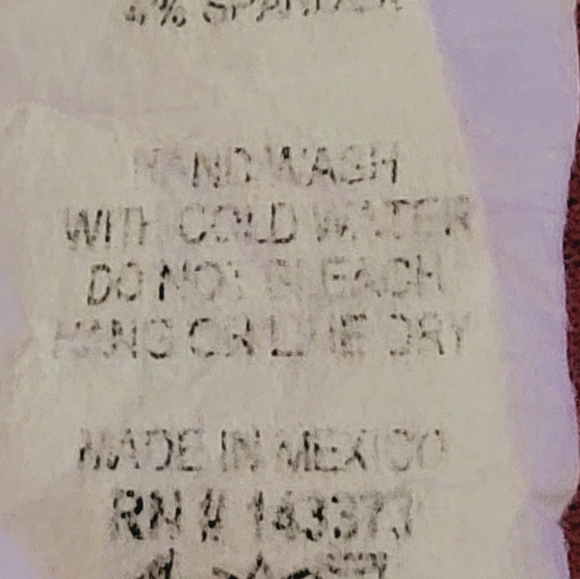 4% SPANDEX
HAND WASH
WITH COLD WATER
DO NOT BLEACH
HANG OR LINE DRY
MADE IN MEXICO
RN # 143373